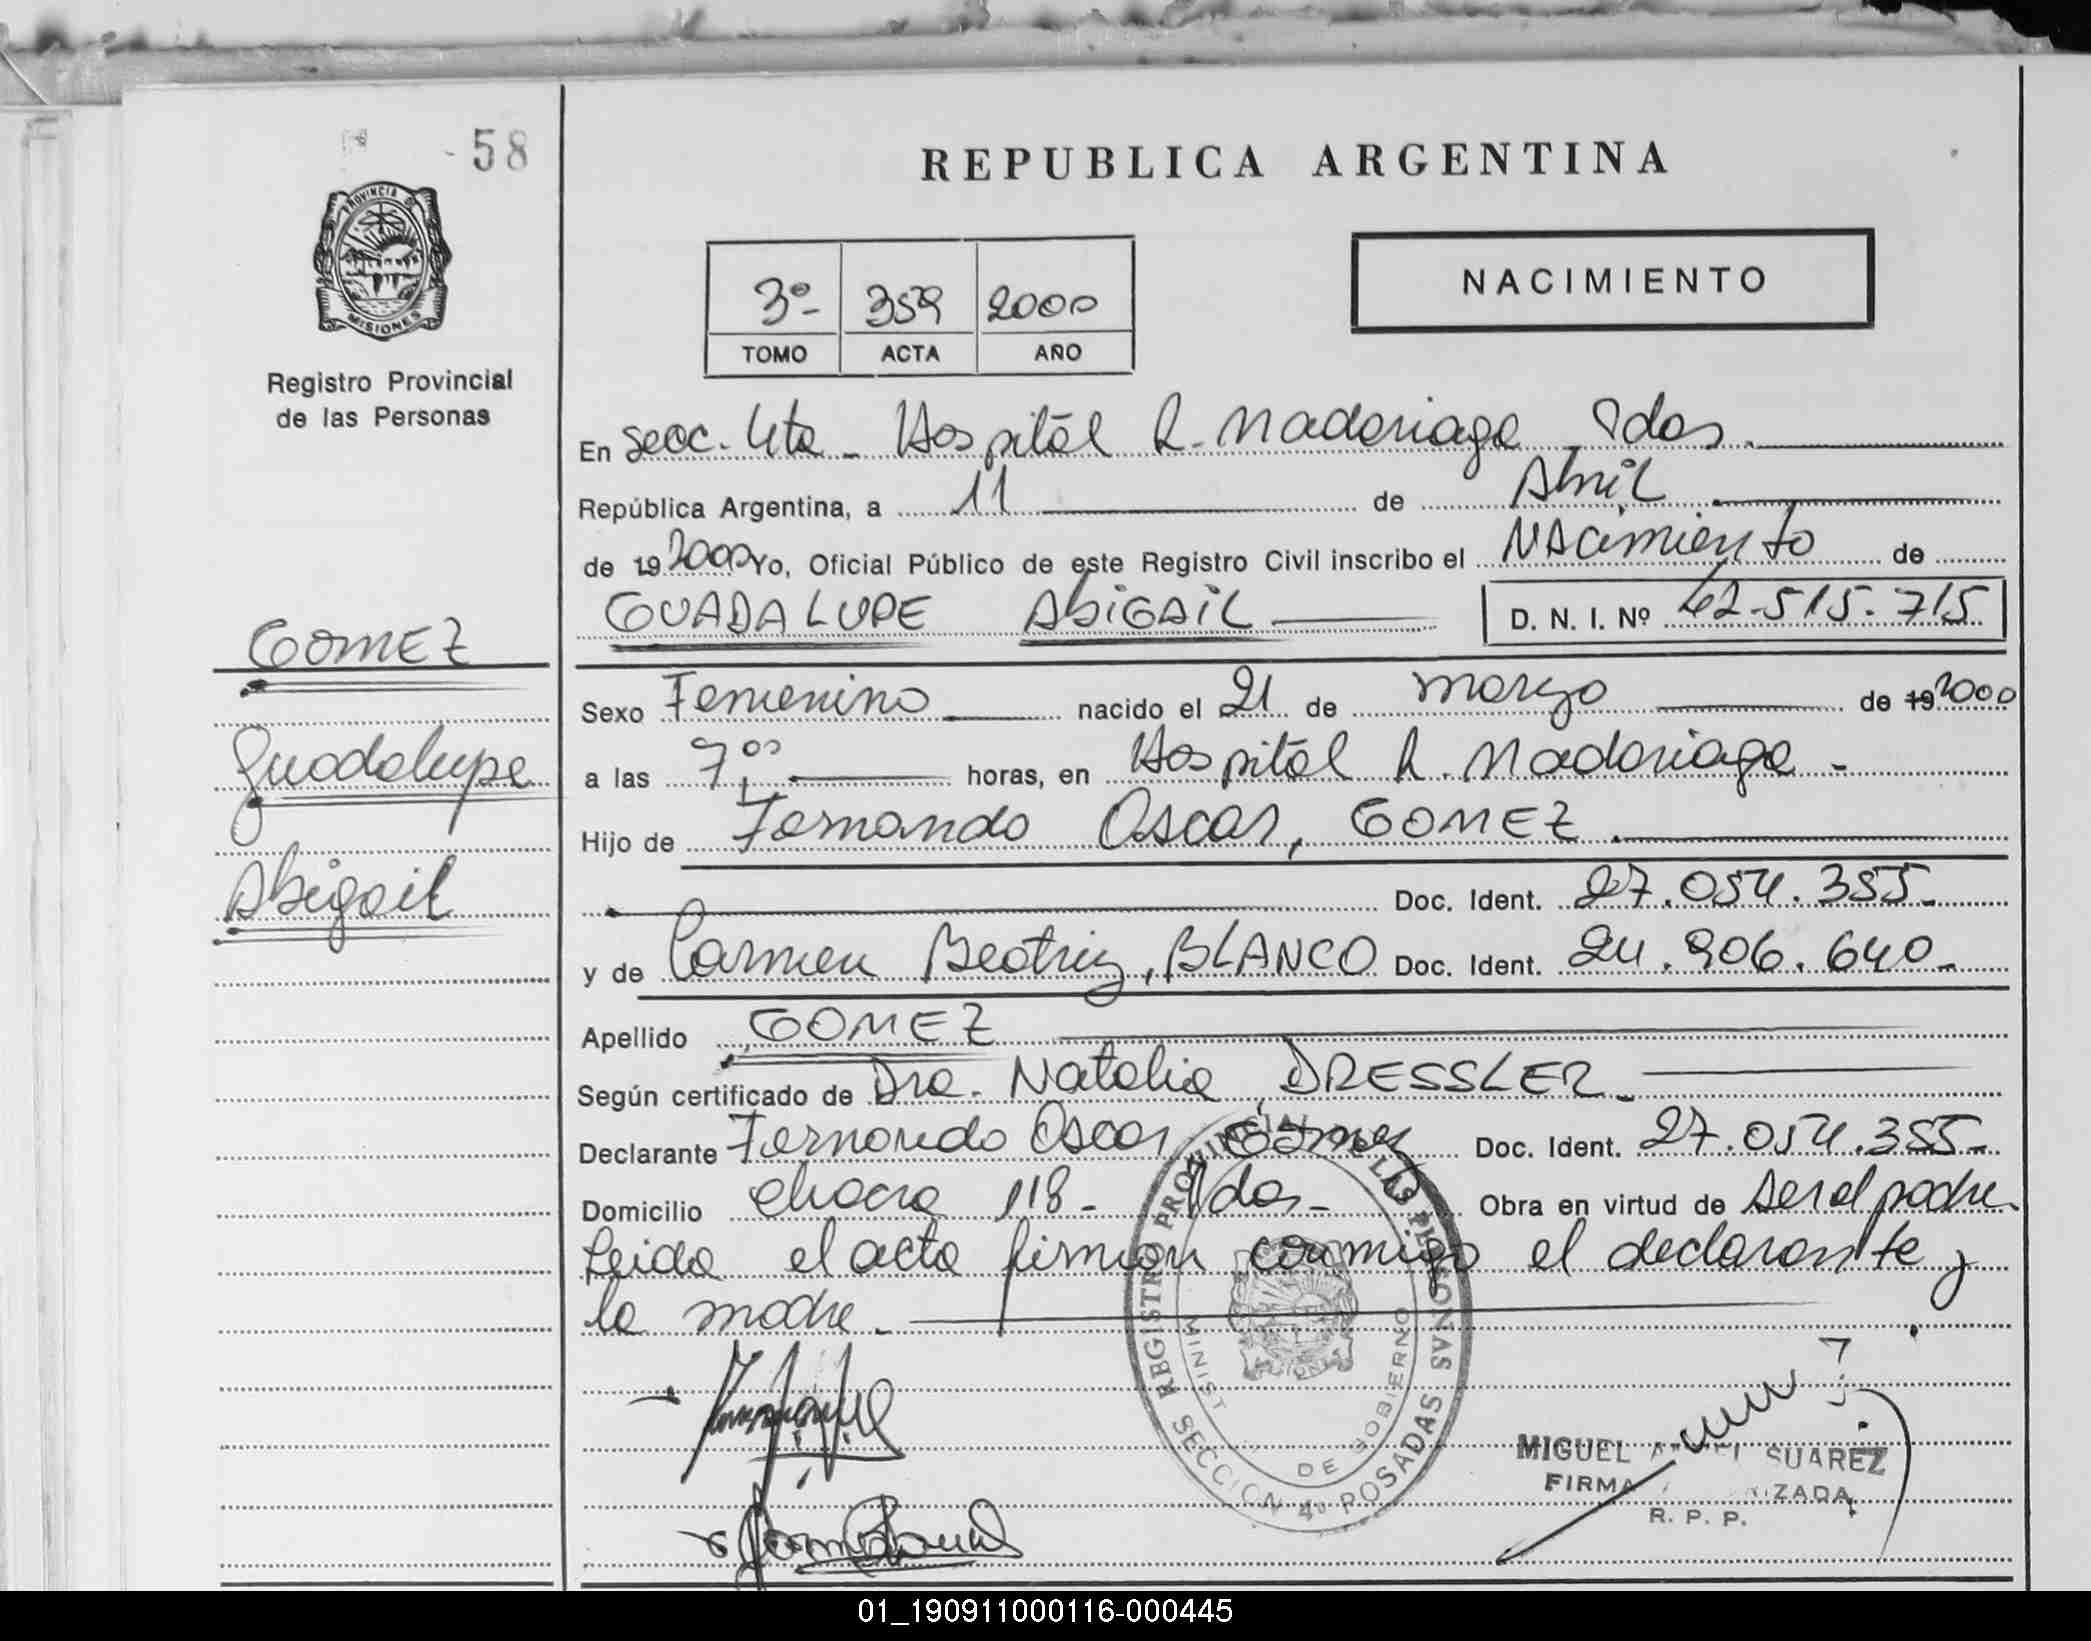 -58
REPUBLICA ARGENTINA
PROVINCIA DE
MISIONES
Registro Provincial
de las Personas
3º- 359 2000
TOMO ACTA AÑO
NACIMIENTO
En Secc. 4ta - Hospital R. Madariaga Pdas.
República Argentina, a 11 de Abril
de 19 2000 Yo, Oficial Público de este Registro Civil inscribo el NAcimiento de
GUADALUPE ABIGAIL D. N. I. Nº 42.515.715
GOMEZ
Guadalupe
Abigail
Sexo Femenino nacido el 21 de marzo de 19 2000
a las 7,00 horas, en Hospital R. Madariaga -
Hijo de Fernando Oscar, GOMEZ.
Doc. Ident. 27.054.355-
y de Carmen Beatriz, BLANCO Doc. Ident. 24.906.640-
Apellido GOMEZ
Según certificado de Dra. Natalia DRESSLER -
Declarante Fernando Oscar Gomez Doc. Ident. 27.054.355-
Domicilio chacra 118- Pdas- Obra en virtud de ser el padre.
Leida el acta firman conmigo el declarante y
la madre.
REGISTRO PROVINCIAL DE LAS PERSONAS
MINIST DE GOBIERNO
SECCION 4º POSADAS
MIGUEL SUAREZ
FIRMA
R. P. P.
01_190911000116-000445